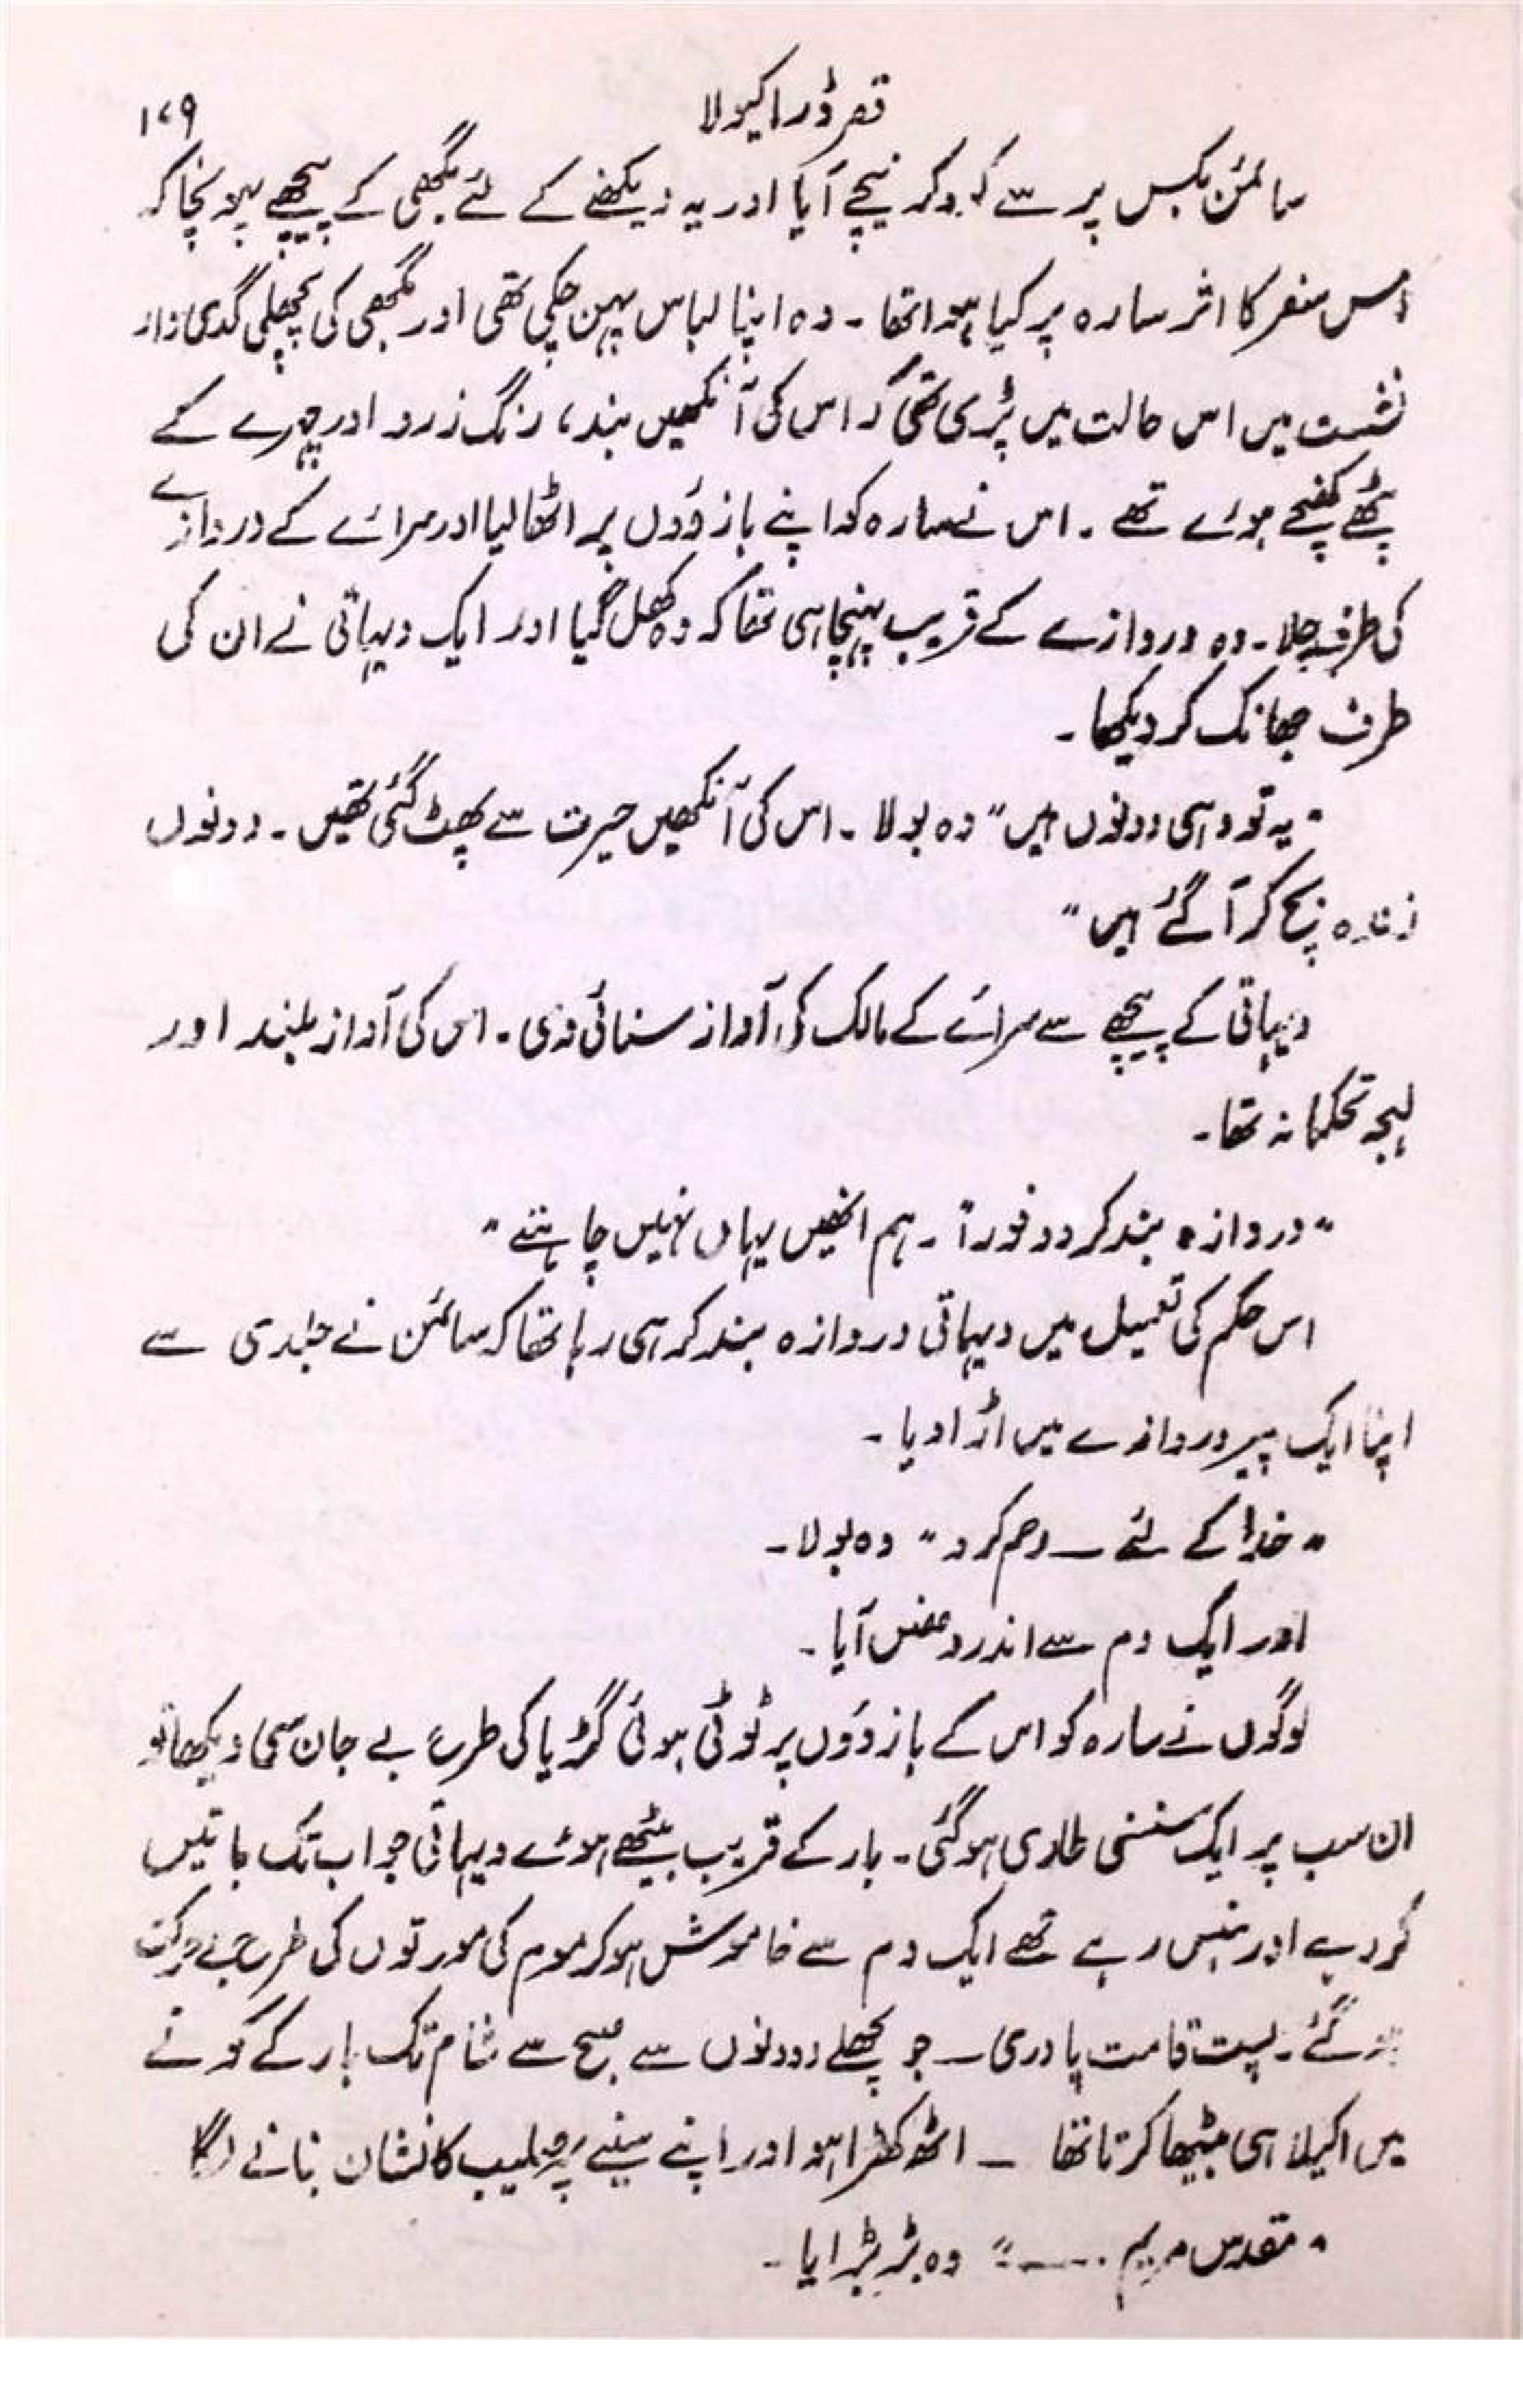 قصر ڈراکیولا
۱۷۹
سائمن بکس پر سے کود کر نیچے آیا اور یہ دیکھنے کے لئے بگھی کے پیچھے پہونچا کہ
اس سفر کا اثر سارہ پر کیا ہوا تھا ۔ وہ اپنا لباس پہن چکی تھی اور بگھی کی پچھلی گدی دار
نشست میں اس حالت میں پڑی تھی کہ اس کی آنکھیں بند، رنگ زرد اور چہرے کے
پٹھے کھنچے ہوئے تھے ۔ اس نے سارہ کو اپنے بازوؤں پر اٹھا لیا اور سرائے کے دروازے
کی طرف چلا ۔ وہ دروازے کے قریب پہنچا ہی تھا کہ وہ کھل گیا اور ایک دیہاتی نے ان کی
طرف جھانک کر دیکھا ۔
" یہ تو وہی دونوں ہیں " وہ بولا ۔ اس کی آنکھیں حیرت سے پھٹ گئی تھیں ۔ دونوں
زندہ بچ کر آ گئے ہیں "
دیہاتی کے پیچھے سے سرائے کے مالک کی آواز سنائی دی ۔ اس کی آواز بلند اور
لہجہ تحکمانہ تھا ۔
" دروازہ بند کر دو فوراً ۔ ہم انھیں یہاں نہیں چاہتے "
اس حکم کی تعمیل میں دیہاتی دروازہ بند کر ہی رہا تھا کہ سائمن نے جلدی سے
اپنا ایک پیر دروازے میں اڑا دیا ۔
" خدا کے لئے ــ رحم کرو " وہ بولا ۔
اور ایک دم سے اندر دھنس آیا ۔
لوگوں نے سارہ کو اس کے بازوؤں پر ٹوٹی ہوئی گڑیا کی طرح بے جان سی دیکھا تو
ان سب پر ایک سنسنی طاری ہو گئی ۔ بار کے قریب بیٹھے ہوئے دیہاتی جو اب تک باتیں
کر رہے اور ہنس رہے تھے ایک دم سے خاموش ہو کر موم کی مورتوں کی طرح بے حرکت
ہو گئے ۔ پست قامت پادری ــ جو پچھلے دو دنوں سے صبح سے شام تک بار کے کونے
میں اکیلا ہی بیٹھا کرتا تھا ــ اٹھ کھڑا ہوا اور اپنے سینے پر صلیب کا نشان بنانے لگا
" مقدس مریم ۔۔۔۔ " وہ بڑبڑایا ۔